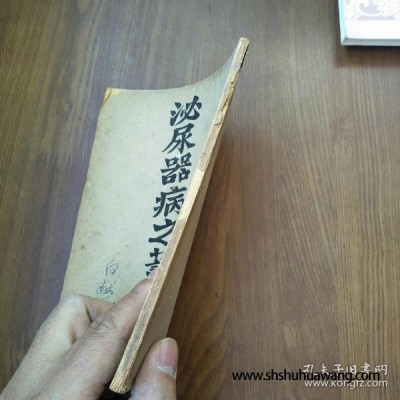 泌尿器病之
www.shshuhuawang.com
孔夫子旧书网
www.kongfz.com